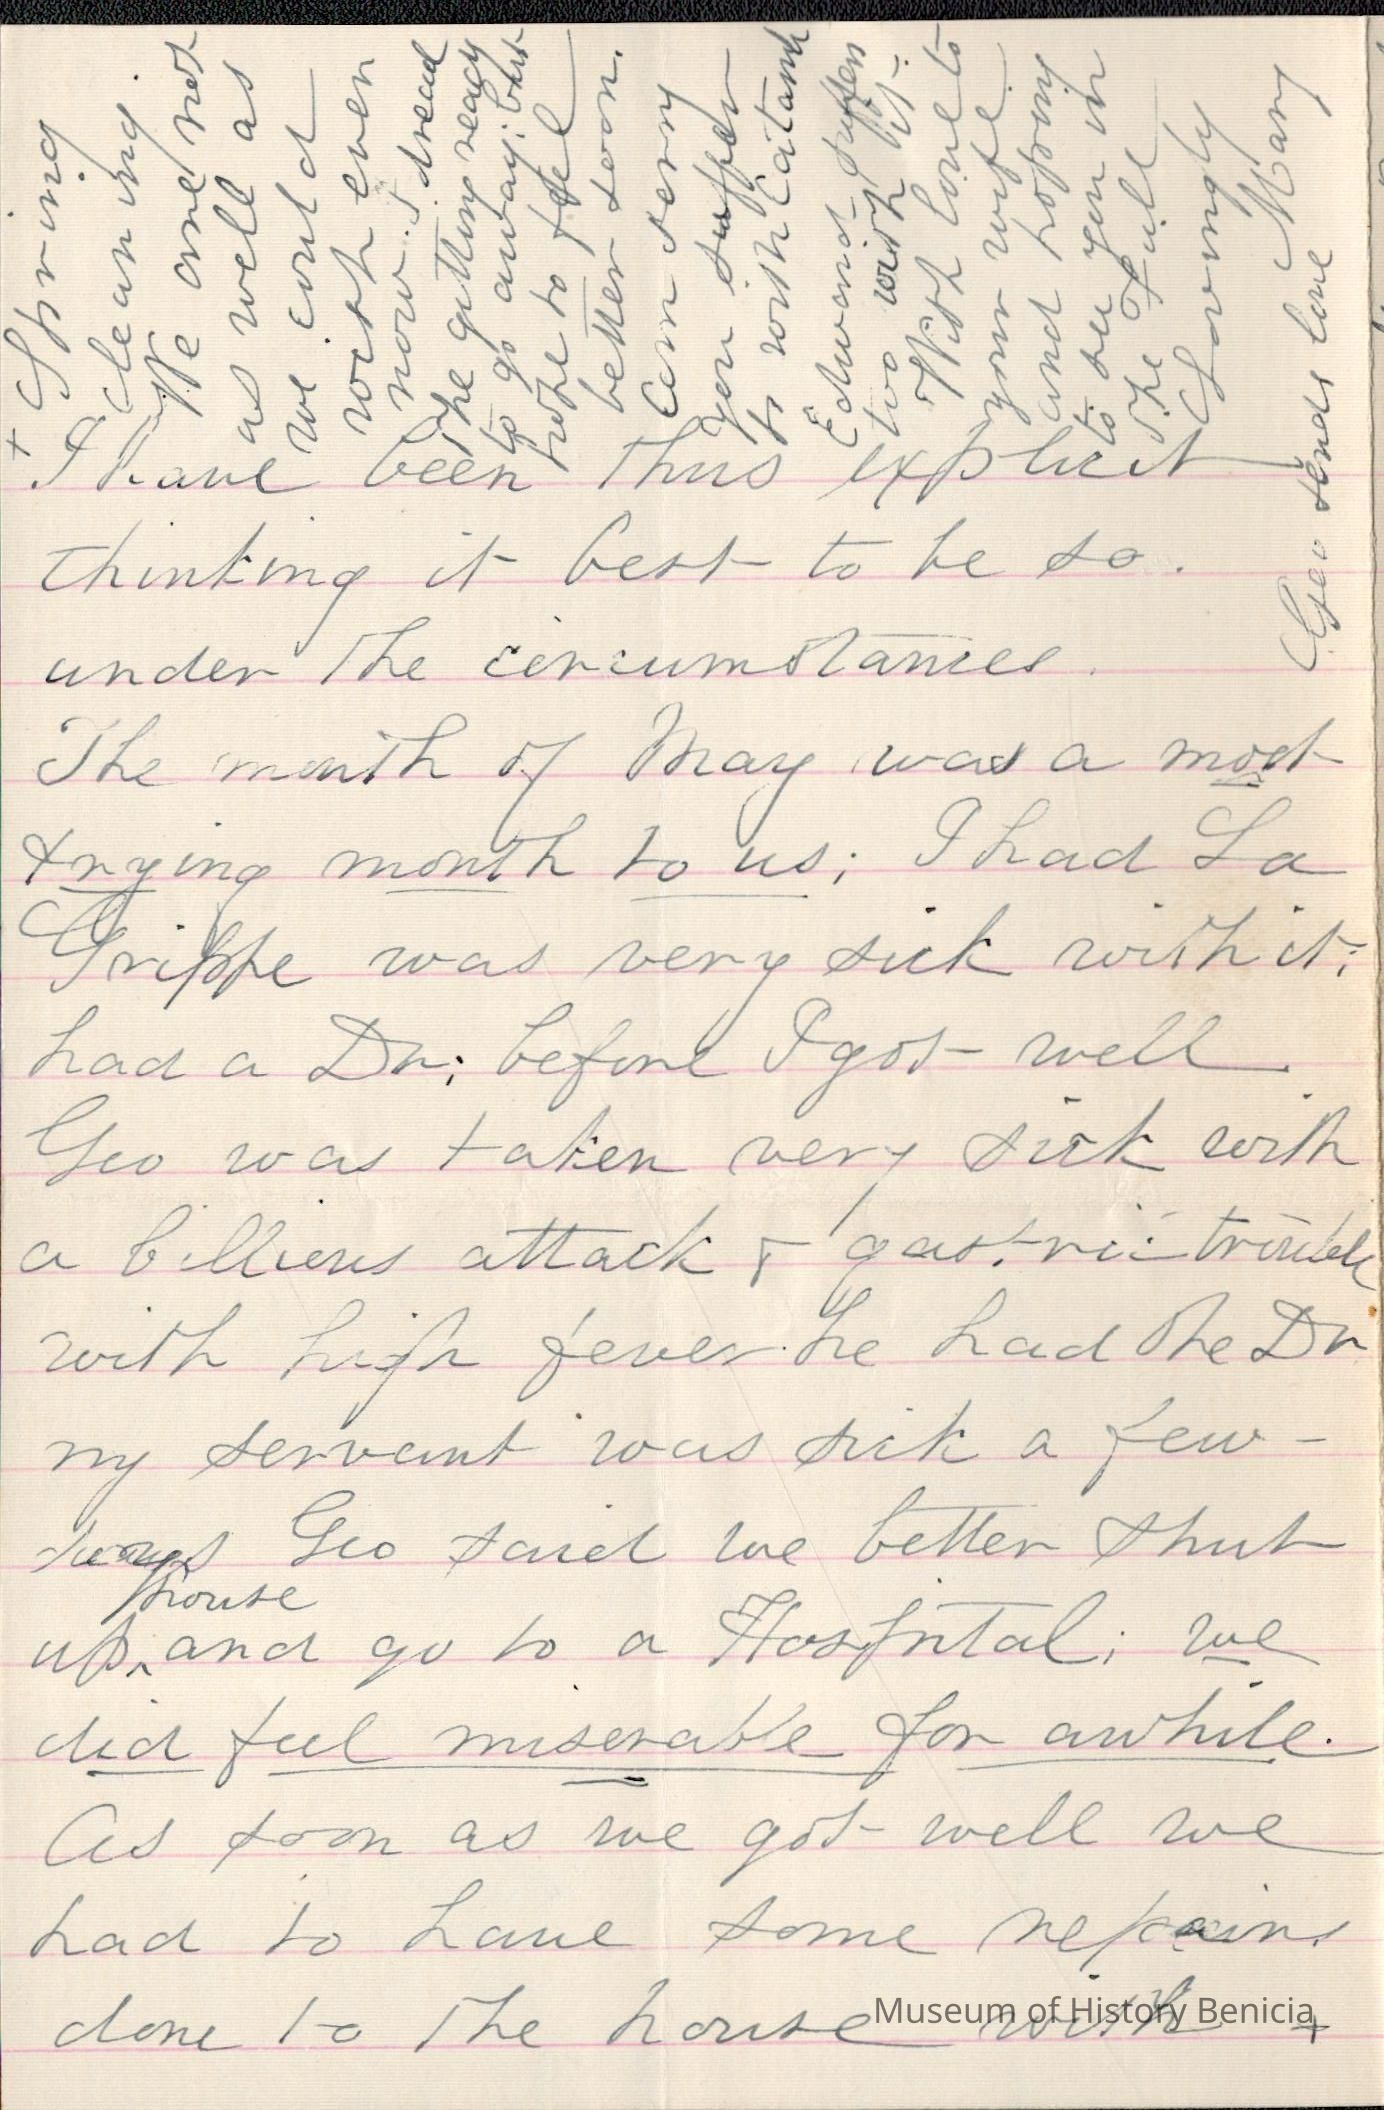 I have been thus explicit
thinking it best to be so.
under the circumstances.
The month of May was a most
trying month to us; I had La
Grippe was very sick with it;
had a Dr; before I got well
Geo was taken very sick with
a billious attack & gastric trouble
with high fever he had the Dr
my servant was sick a few -
days Geo said we better shut
up house and go to a Hospital; we
did feel miserable for awhile.
As soon as we got well we
had to have some repairs
done to the house with +
+ Spring
cleaning.
We are not
as well as
we could
wish even
now. I dread
The getting ready
to go away; but
hope to feel
better soon.
Am sorry
you suffer
so with Catarrh
Edward suffers
two with it.
With love to
your wife.
and hoping
to see you in
The Fall
Lovingly
Mary
Geo sends love
Museum of History Benicia